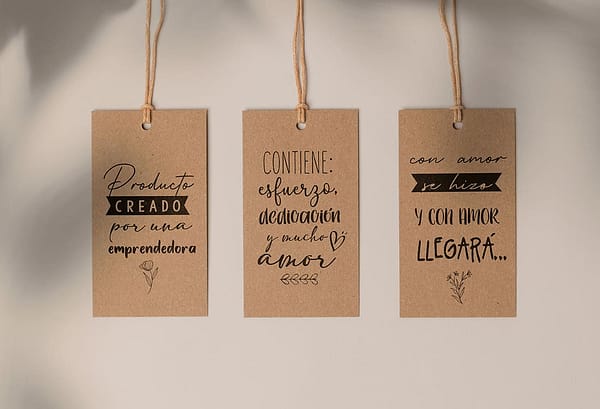 Producto
CREADO
por una
emprendedora
CONTIENE:
esfuerzo,
dedicación
y mucho
amor
con amor
se hizo
Y CON AMOR
LLEGARÁ...